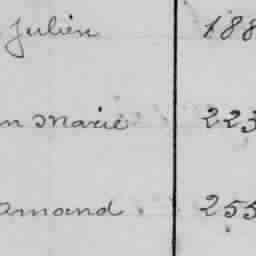 Julien 188
n Marie 223
Amand 255